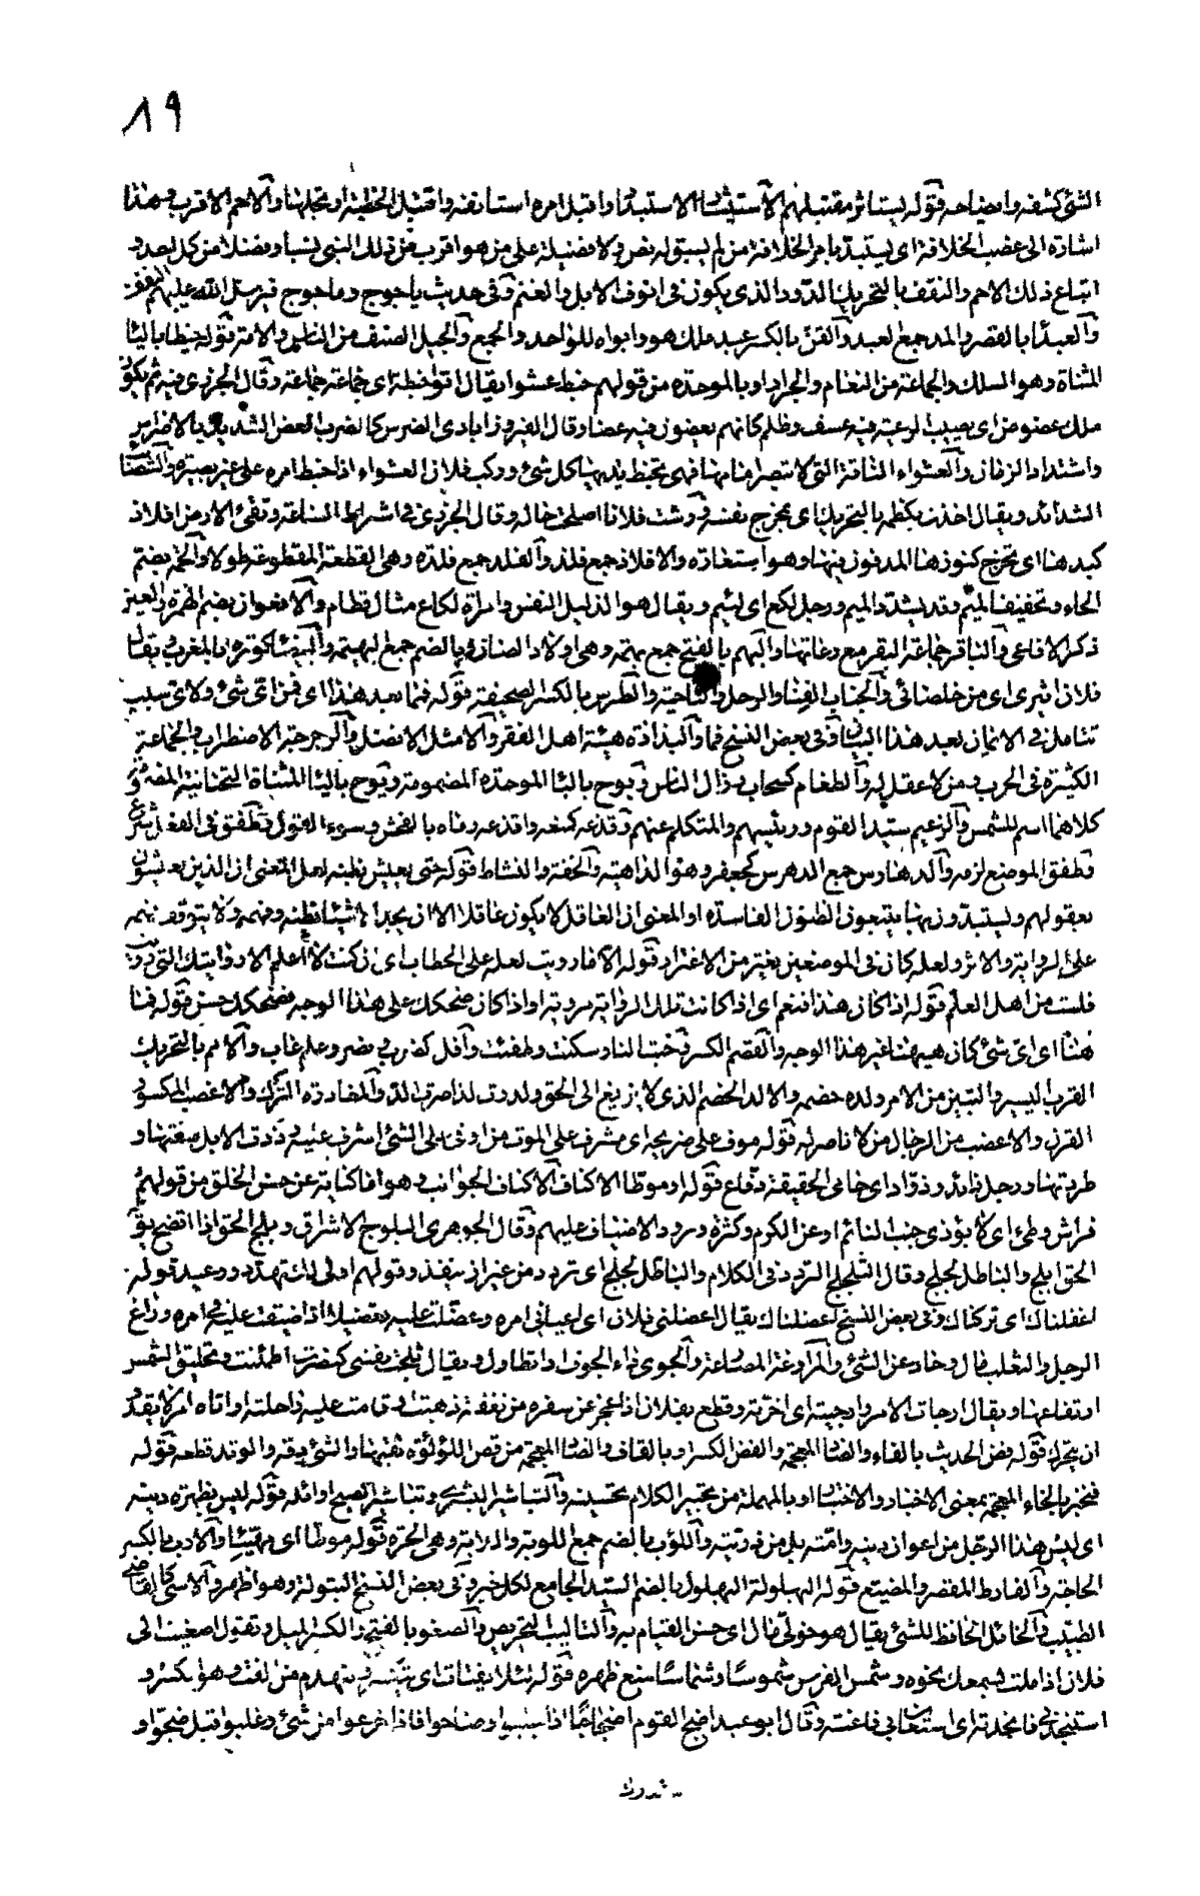 ٨٩
الشئ كشفه وايضاحه قوله ليستاثر مقتبلهم الاستيثار الاستبداد واقتبل امره استانفه واقتبل الخطبة ارتجلها والاحم الاقرب وهذا
اشارة الى غصب الخلافة اى يستبد بامر الخلافة من لم يسبق له نص ولا فضيلة على من هو اقرب من ذلك النبى نسبا وفضلا من كل احد و
اتباع ذلك الاحم والنغف بالتحريك الدود الذى يكون فى انوف الابل والغنم وفى حديث ياجوج وماجوج فيرسل الله عليهم النغف
والعبدا بالقصر والمد جمع العبد والقن بالكسر عبد ملك هو وابواه للواحد والجمع والجبل الصنف من الناس والامة قوله خيطا بالياء
المثناة وهو السلك والجماعة من النعام والجراد او بالموحدة من قولهم خبط عشوا يقال اتوا خبطة اى جماعة جماعة وقال الجزرى فيه ثم يكون
ملك عضوض اى يصيب الرعية فيه عسف وظلم كانهم يعضون فيه عضا وقال الفيروزابادى الضرس كالضرب العض الشديد بالاضراس
واشتداد الزمان والعشواء الناقة التى لا تبصر امامها فهى تخبط بيديها كل شئ وركب فلان العشواء اذا خبط امره على غير بصيرة
الشدائد ويقال اخذت بكظمه بالتحريك اى بمخرج نفسه ورشت فلانا اصلحت حاله وقال الجزرى فى اشراط الساعة وتقئ الارض افلاذ
كبدها اى تخرج كنوزها المدفون فيها وهو استعارة والافلاذ جمع فلذ والفلذ جمع فلذة وهى القطعة المقطوعة طولا والحمة بضم
الحاء وتخفيف الميم وقد يشدد الميم ورجل لكع اى لئيم ويقال هو الذليل النفس وامراة لكاع مثال قطام والافعوان بضم الهمزة والعين
ذكر الافاعى والباقر جماعة البقر مع رعاتها والبهم بالفتح جمع بهمة وهى اولاد الضان وبالضم جمع البهيمة والبيضاء كورة بالمغرب يقال
فلان ابثرى اى من خلصائى والجناب الفناء والرحل والناحية والطرس بالكسر الصحيفة قوله فما بعد هذا اى فمن اى شئ ولاى سبب
تتامل فى الايمان بعد هذا البيان وفى بعض النسخ فما والبذاذة هيئة اهل الفقر والامثل الافضل والرجرجة الاضطراب والجماعة
الكثيرة فى الحرب ومن لا عقل له والطغام كسحاب رذال الناس وبوح بالباء الموحدة المضمومة ويوح بالياء المثناة التحتانية المضمومة
كلاهما اسم للشمس والزعيم سيد القوم ورئيسهم والمتكلم عنهم وقذعه كمنعه واقذعه رماه بالفحش وسوء القول وطفق فى الفعل شرع
وطفق الموضع لزمه والدهارس جمع الدهرس كجعفر وهو الداهية والخفة والنشاط قوله حتى يعيش بظنه لعل المعنى ان الذين يعيشون
بعقولهم ويستبدون بها يتبعون الظنون الفاسدة او المعنى ان العاقل لا يكون عاقلا الا ان يجد الاشياء بظنه وفهمه ولا يتوقف فهمه
على الرواية والاثر ولعله كان فى الموضعين يغتر من الاغترار قوله الا ما رويت لعله على الخطاب اى ان كنت لا اعلم الا روايتك التى رويت
فلست من اهل العلم قوله اذ كان هذا فنعم اى اذا كانت تلك الرواية مروية او اذا كان ضحكك على هذا الوجه فضحكك حسن قوله فما
هنا اى اى شئ كان هيهنا غير هذا الوجه والقصم الكسر وخبت النار سكنت وطفئت وافل كضرب ونصر وعلم غاب والامم بالتحريك
القرب اليسير والتبين من الامر ولده خصمه والالد الخصم الذى لا يزيغ الى الحق ولددت لدا صرت الد والمغادرة الترك والاعضب المكسور
القرن والاعضب من الرجال من لا ناصر له قوله موف على ضريحه اى مشرف على الموت من اوفى على الشئ اشرف عليه وذدت الابل سقتها و
طردتها ورجل ذائد وذواد اى حامى الحقيقة دفاع قوله وموطا الاكناف الاكناف الجوانب وهو اما كناية عن حسن الخلق من قولهم
فراش وطئ اى لا يؤذى جنب النائم او عن الكرم وكثرة ورود الاضياف عليهم وقال الجوهرى البلوج الاشراق وبلج الحق اذا اتضح يقال
الحق ابلج والباطل لجلج وقال التلجلج التردد فى الكلام والباطل لجلج اى تردد من غير ان ينفذ وقولهم اولى لك تهدد ووعيد قوله
اغفلناك اى تركناك وفى بعض النسخ اعضلناك يقال اعضلنى فلان اى اعيانى امره وعضلت عليه تعضيلا اذا ضيقت عليه فى امره وراغ
الرجل والثعلب مال وحاد عن الشئ والمراوغة المصارعة والجوى داء الجوف اذا تطاول ويقال ثلجت نفسى كنصرت اطمئنت وتحليق الشمس
ارتفاعها ويقال ارجات الامر وارجيته اى اخرته وقطع بفلان اذا عجز عن سفره من نفقة ذهبت او قامت عليه راحلته او اتاه امر لا يقدر
ان يتحرك قوله وفض الحديث بالفاء والضاد المعجمة والفض الكسر او بالقاف والضاد المعجمة من قض اللؤلؤة ثقبها والشئ دقه والوتد قطعه قوله
فتخبر بالخاء المعجمة بمعنى الاخبار والاختبار او بالمهملة من تحبير الكلام تحسينه والتباشير البشرى وتباشير الصبح اوائله قوله ليس بظهره دينه
اى ليس هذا الرجل من اعوان دينه وامته بل من ذريته واللؤب بالضم جمع اللوبة واللابة وهى الحرة قوله موطا اى مهيئا والارب بالكسر
الحاجة والفارط المقصر والمضيع قوله البهلولة البهلول بالضم السيد الجامع لكل خير وفى بعض النسخ البتولة وهو اظهر والاسى كالقاضى
الطبيب والخائل الحافظ للشئ يقال هو خولى مال اى حسن القيام به والتاليب التحريص والصغو بالفتح والكسر الميل وتقول اصغيت الى
فلان اذا ملت بسمعك نحوه وشمس الفرس شموسا وشماسا منع ظهره قوله لئلا يفتات اى يتكسر ويتهدم من الفت وهو بكسر و
استنجدنى فانجدته اى استعان بى فاعنته وقال ابو عبيد اضج القوم اضجاجا اذا جلبوا وصاحوا فاذا جزعوا من شئ وغلبوا قيل ضجوا و